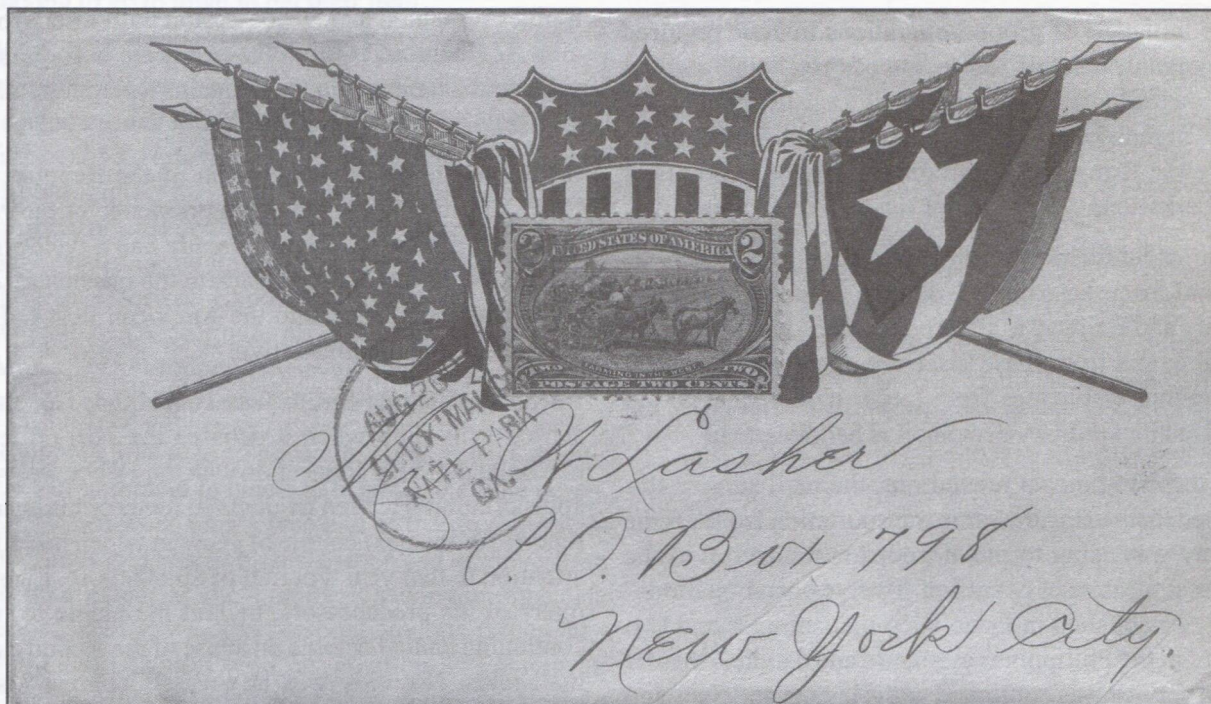 2 UNITED STATES OF AMERICA 2
FARMING IN THE WEST.
TWO TWO
POSTAGE TWO CENTS
AUG 20
CHICK'MAUGA
NAT'L PARK
GA.
Mr W Lasher
P. O. Box 798
New York City.